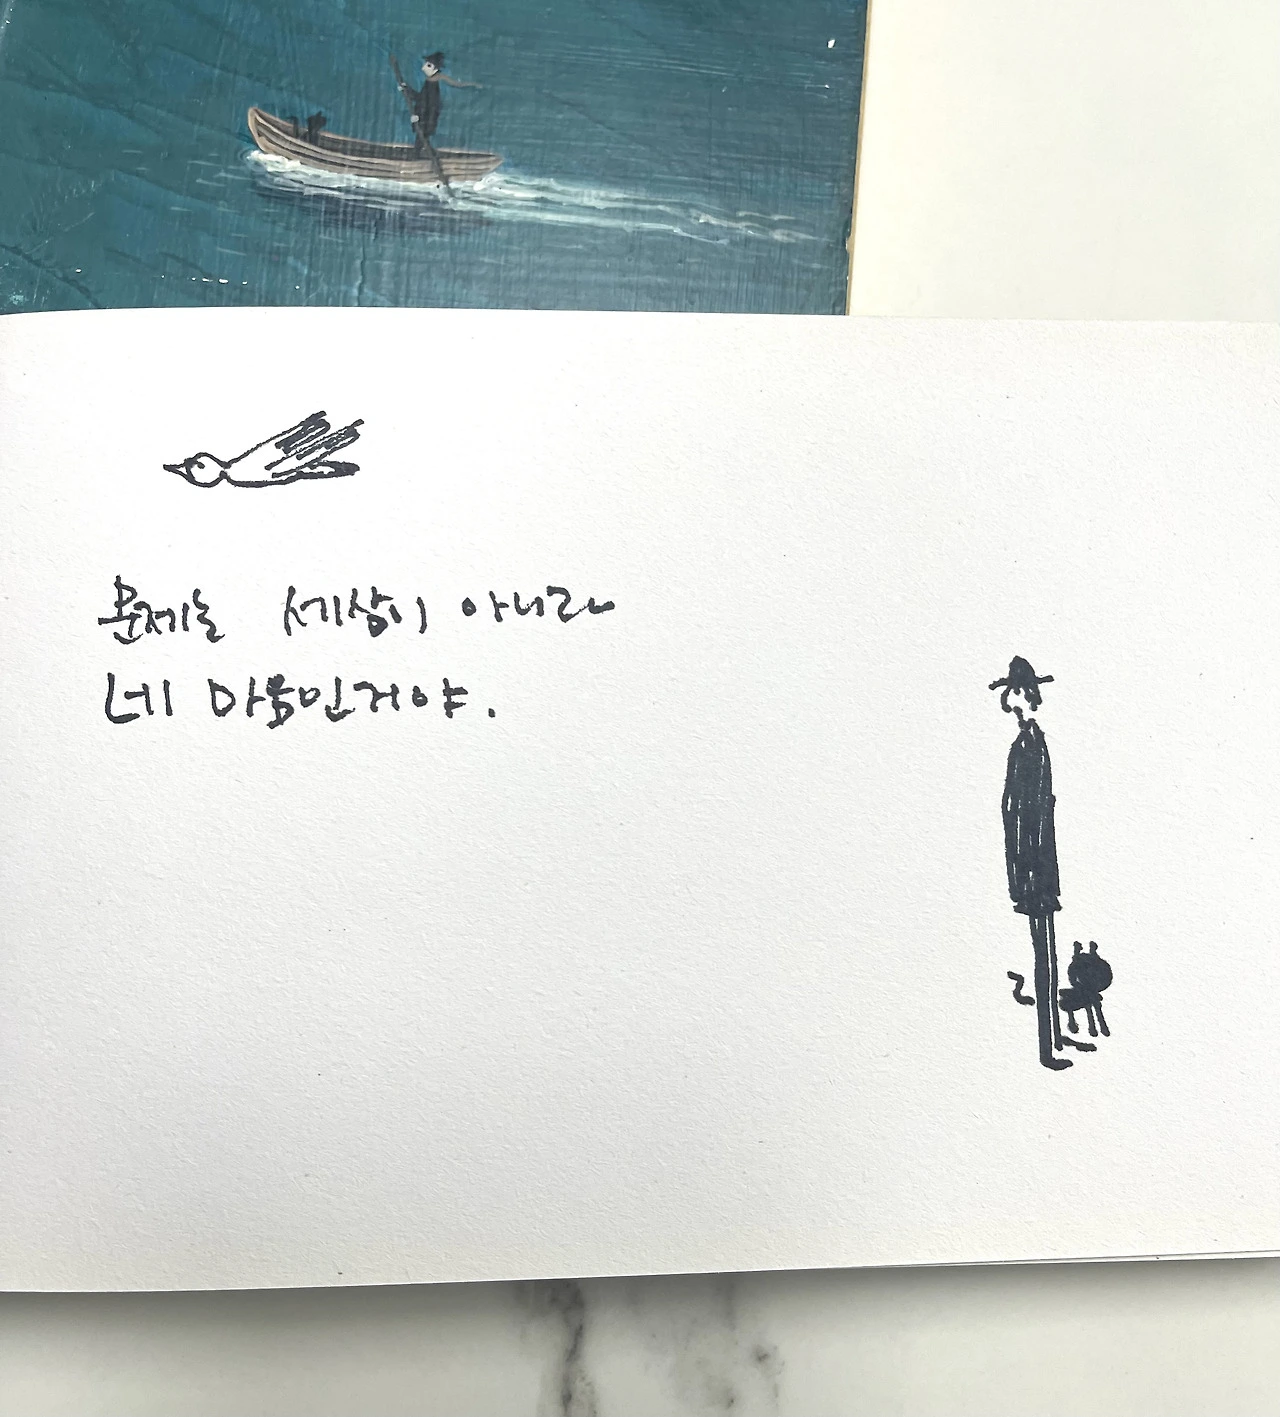 문제는 세상이 아니라
네 마음인거야.